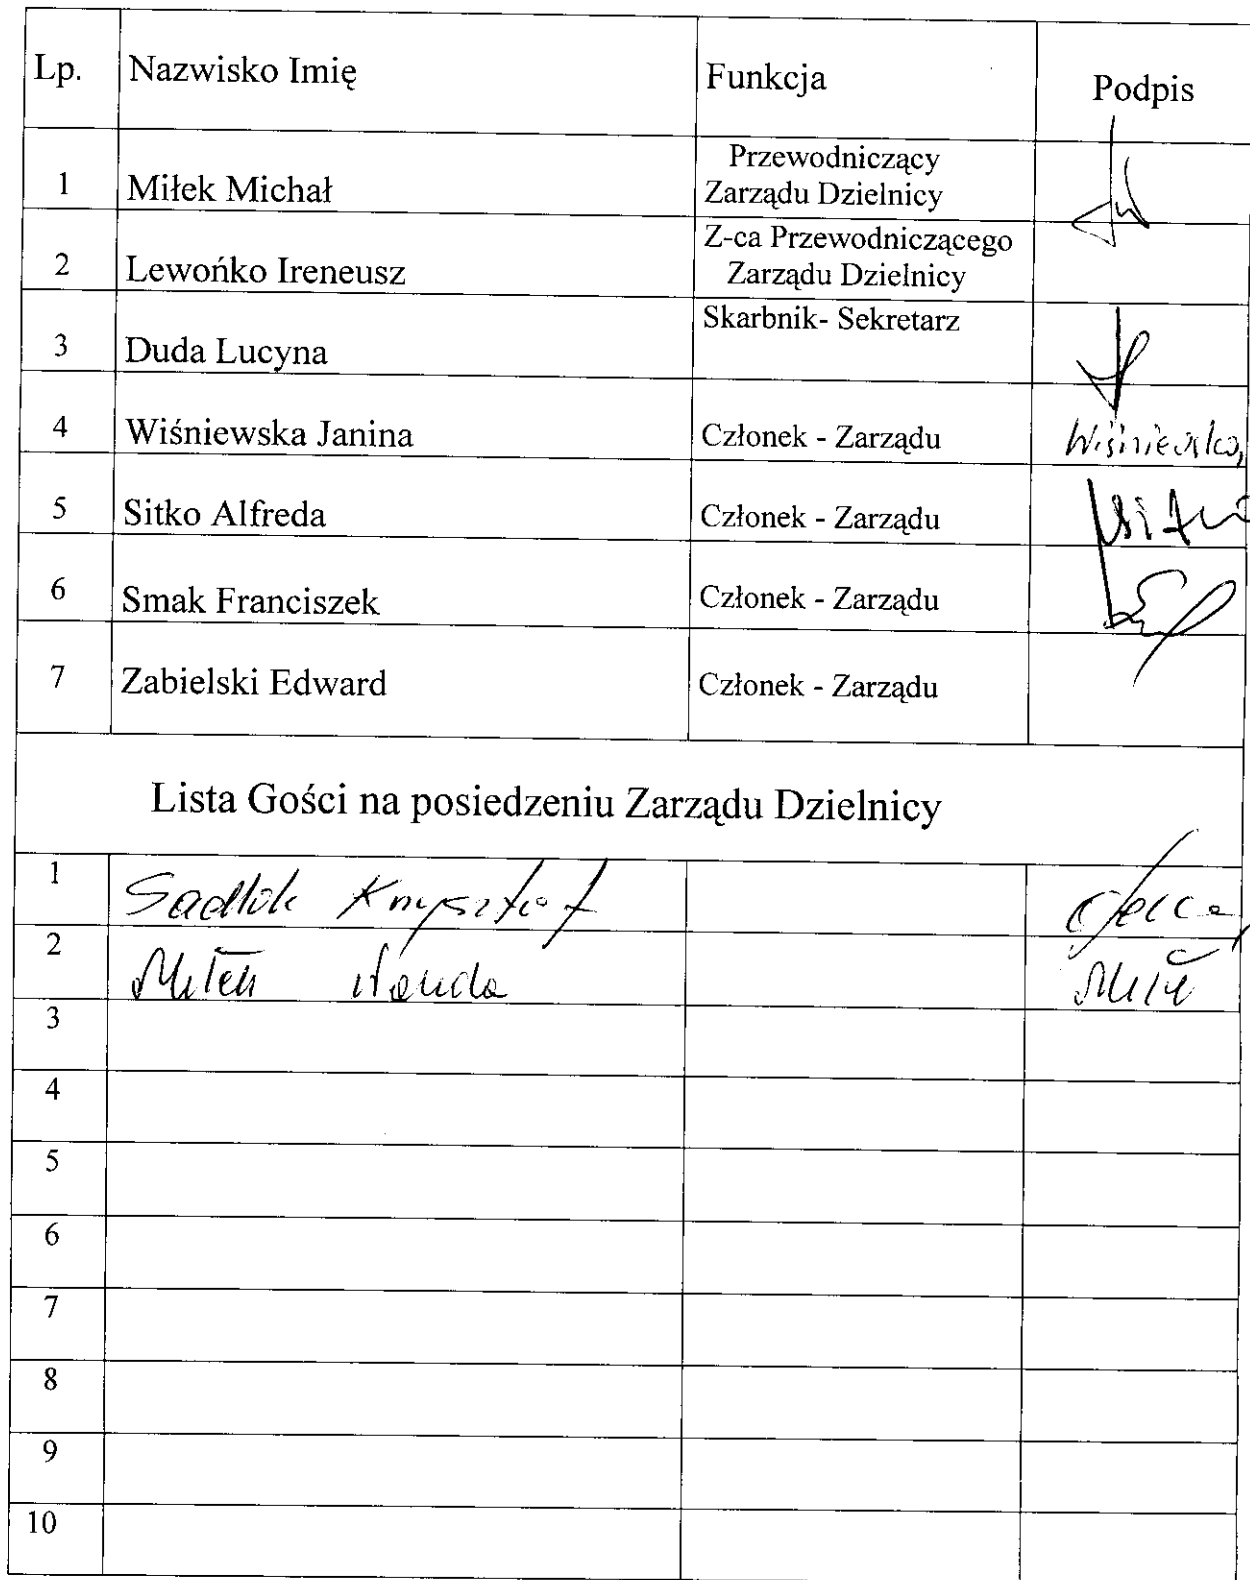 Lp. Nazwisko Imię Funkcja Podpis
1 Miłek Michał Przewodniczący
Zarządu Dzielnicy
2 Lewońko Ireneusz Z-ca Przewodniczącego
Zarządu Dzielnicy
3 Duda Lucyna Skarbnik- Sekretarz
4 Wiśniewska Janina Członek - Zarządu Wiśniewska
5 Sitko Alfreda Członek - Zarządu
6 Smak Franciszek Członek - Zarządu
7 Zabielski Edward Członek - Zarządu
Lista Gości na posiedzeniu Zarządu Dzielnicy
1 Sadlok Krzysztof
2 Miłek Wanda
3
4
5
6
7
8
9
10